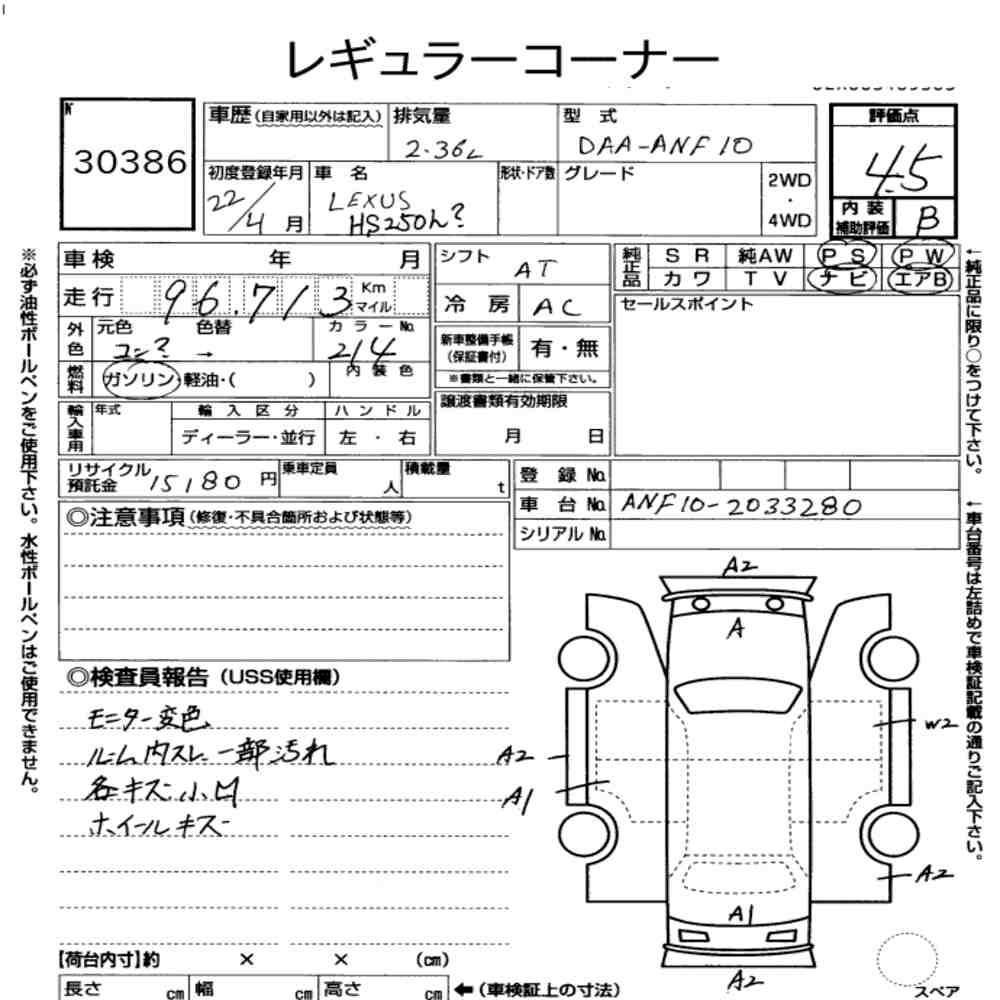 レギュラーコーナー
No
30386
車歴(自家用以外は記入)
排気量
2.36L
型式
DAA-ANF10
評価点
4.5
内装補助評価
B
初度登録年月
22/4月
車名
LEXUS
HS250h?
形状・ドア数
グレード
2WD
・
4WD
車検 年 月
走行 96,713 Km マイル
外色
元色 色替
コン? →
カラーNo.
214
燃料
ガソリン・軽油・( )
内装色
輸入車用
年式
輸入区分
ディーラー・並行
ハンドル
左・右
シフト AT
冷房 AC
新車整備手帳(保証書付)
有・無
※書類と一緒に保管下さい。
譲渡書類有効期限
月 日
純正品
SR 純AW PS PW
カワ TV ナビ エアB
セールスポイント
リサイクル預託金 15180円
乗車定員 人
積載量 t
登録No.
車台No. ANF10-2033280
シリアルNo.
◎注意事項(修復・不具合箇所および状態等)
◎検査員報告(USS使用欄)
モニター変色
ルーム内スレ 一部汚れ
各キズ小凹
ホイールキズ
A2
A
A2
A1
W2
A2
A1
A2
スペア
【荷台内寸】約 × × (cm)
長さ cm 幅 cm 高さ cm
←(車検証上の寸法)
※必ず油性ボールペンをご使用下さい。水性ボールペンはご使用できません。
←純正品に限り○をつけて下さい。
←車台番号は左詰めで車検証記載の通りご記入下さい。